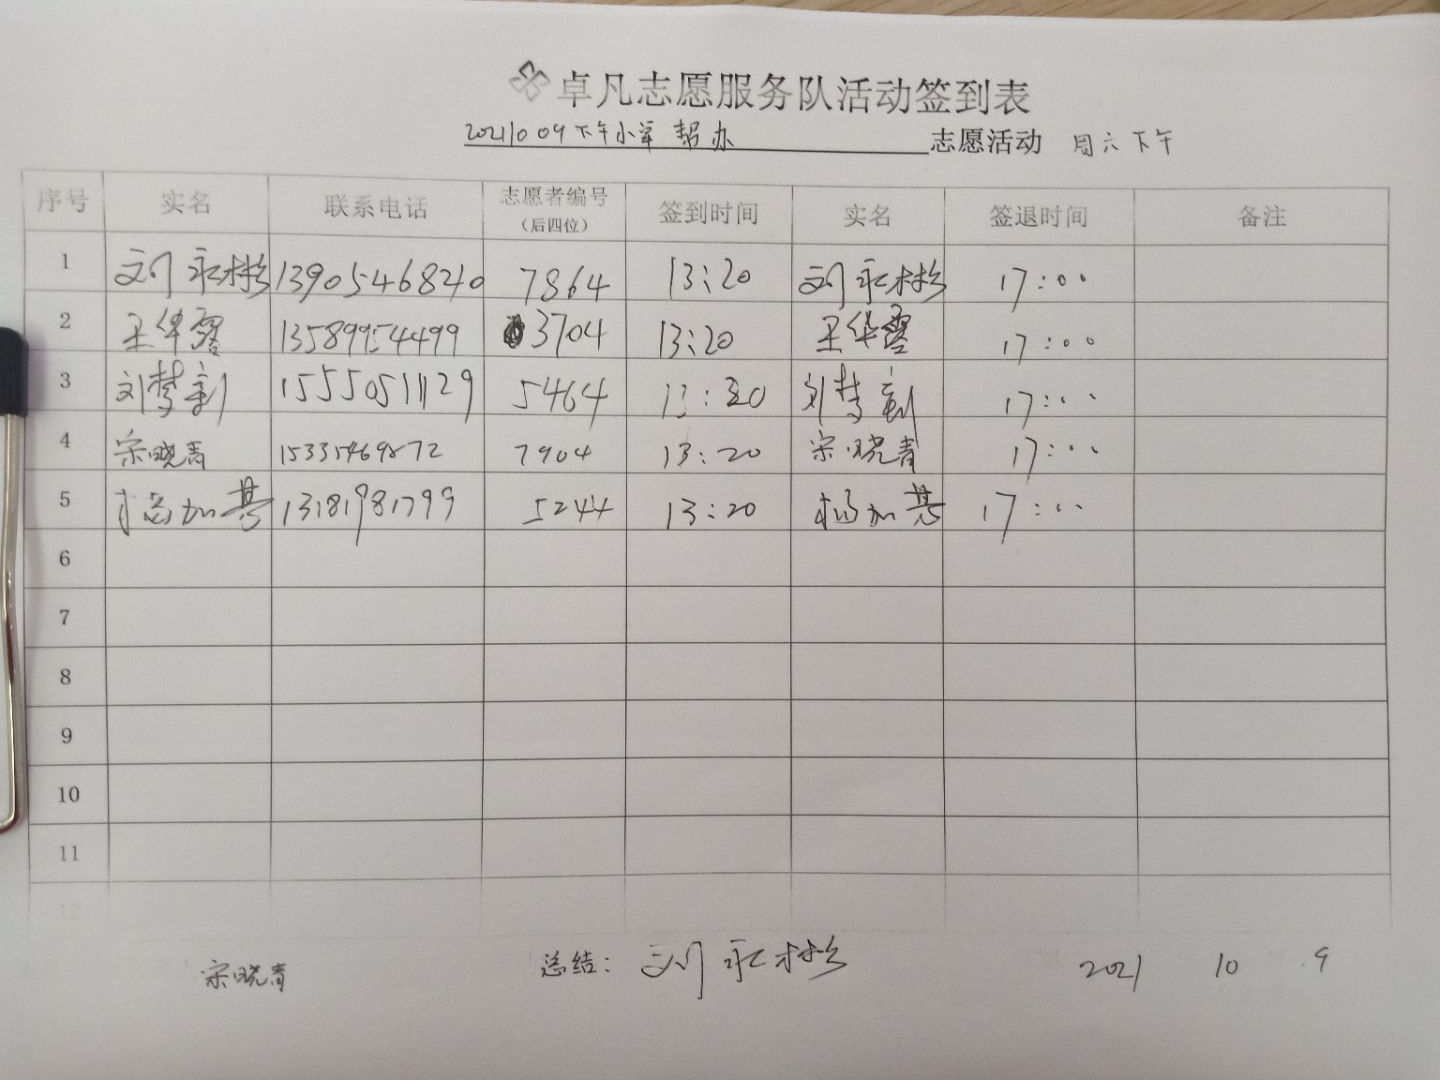 卓凡志愿服务队活动签到表
20211009下午小军帮办 志愿活动 周六下午
序号 实名 联系电话 志愿者编号（后四位） 签到时间 实名 签退时间 备注
1 刘永彬 13905468210 7864 13:20 刘永彬 17:00
2 王华露 13589954499 3704 13:20 王华露 17:00
3 刘梦 15550511129 5464 13:20 刘梦 17:00
4 宋晓青 7904 13:20 宋晓青 17:00
5 杨加慧 13181981799 5244 13:20 杨加慧 17:00
6
7
8
9
10
11
12
宋晓青 总结： 刘永彬 2021 10 9